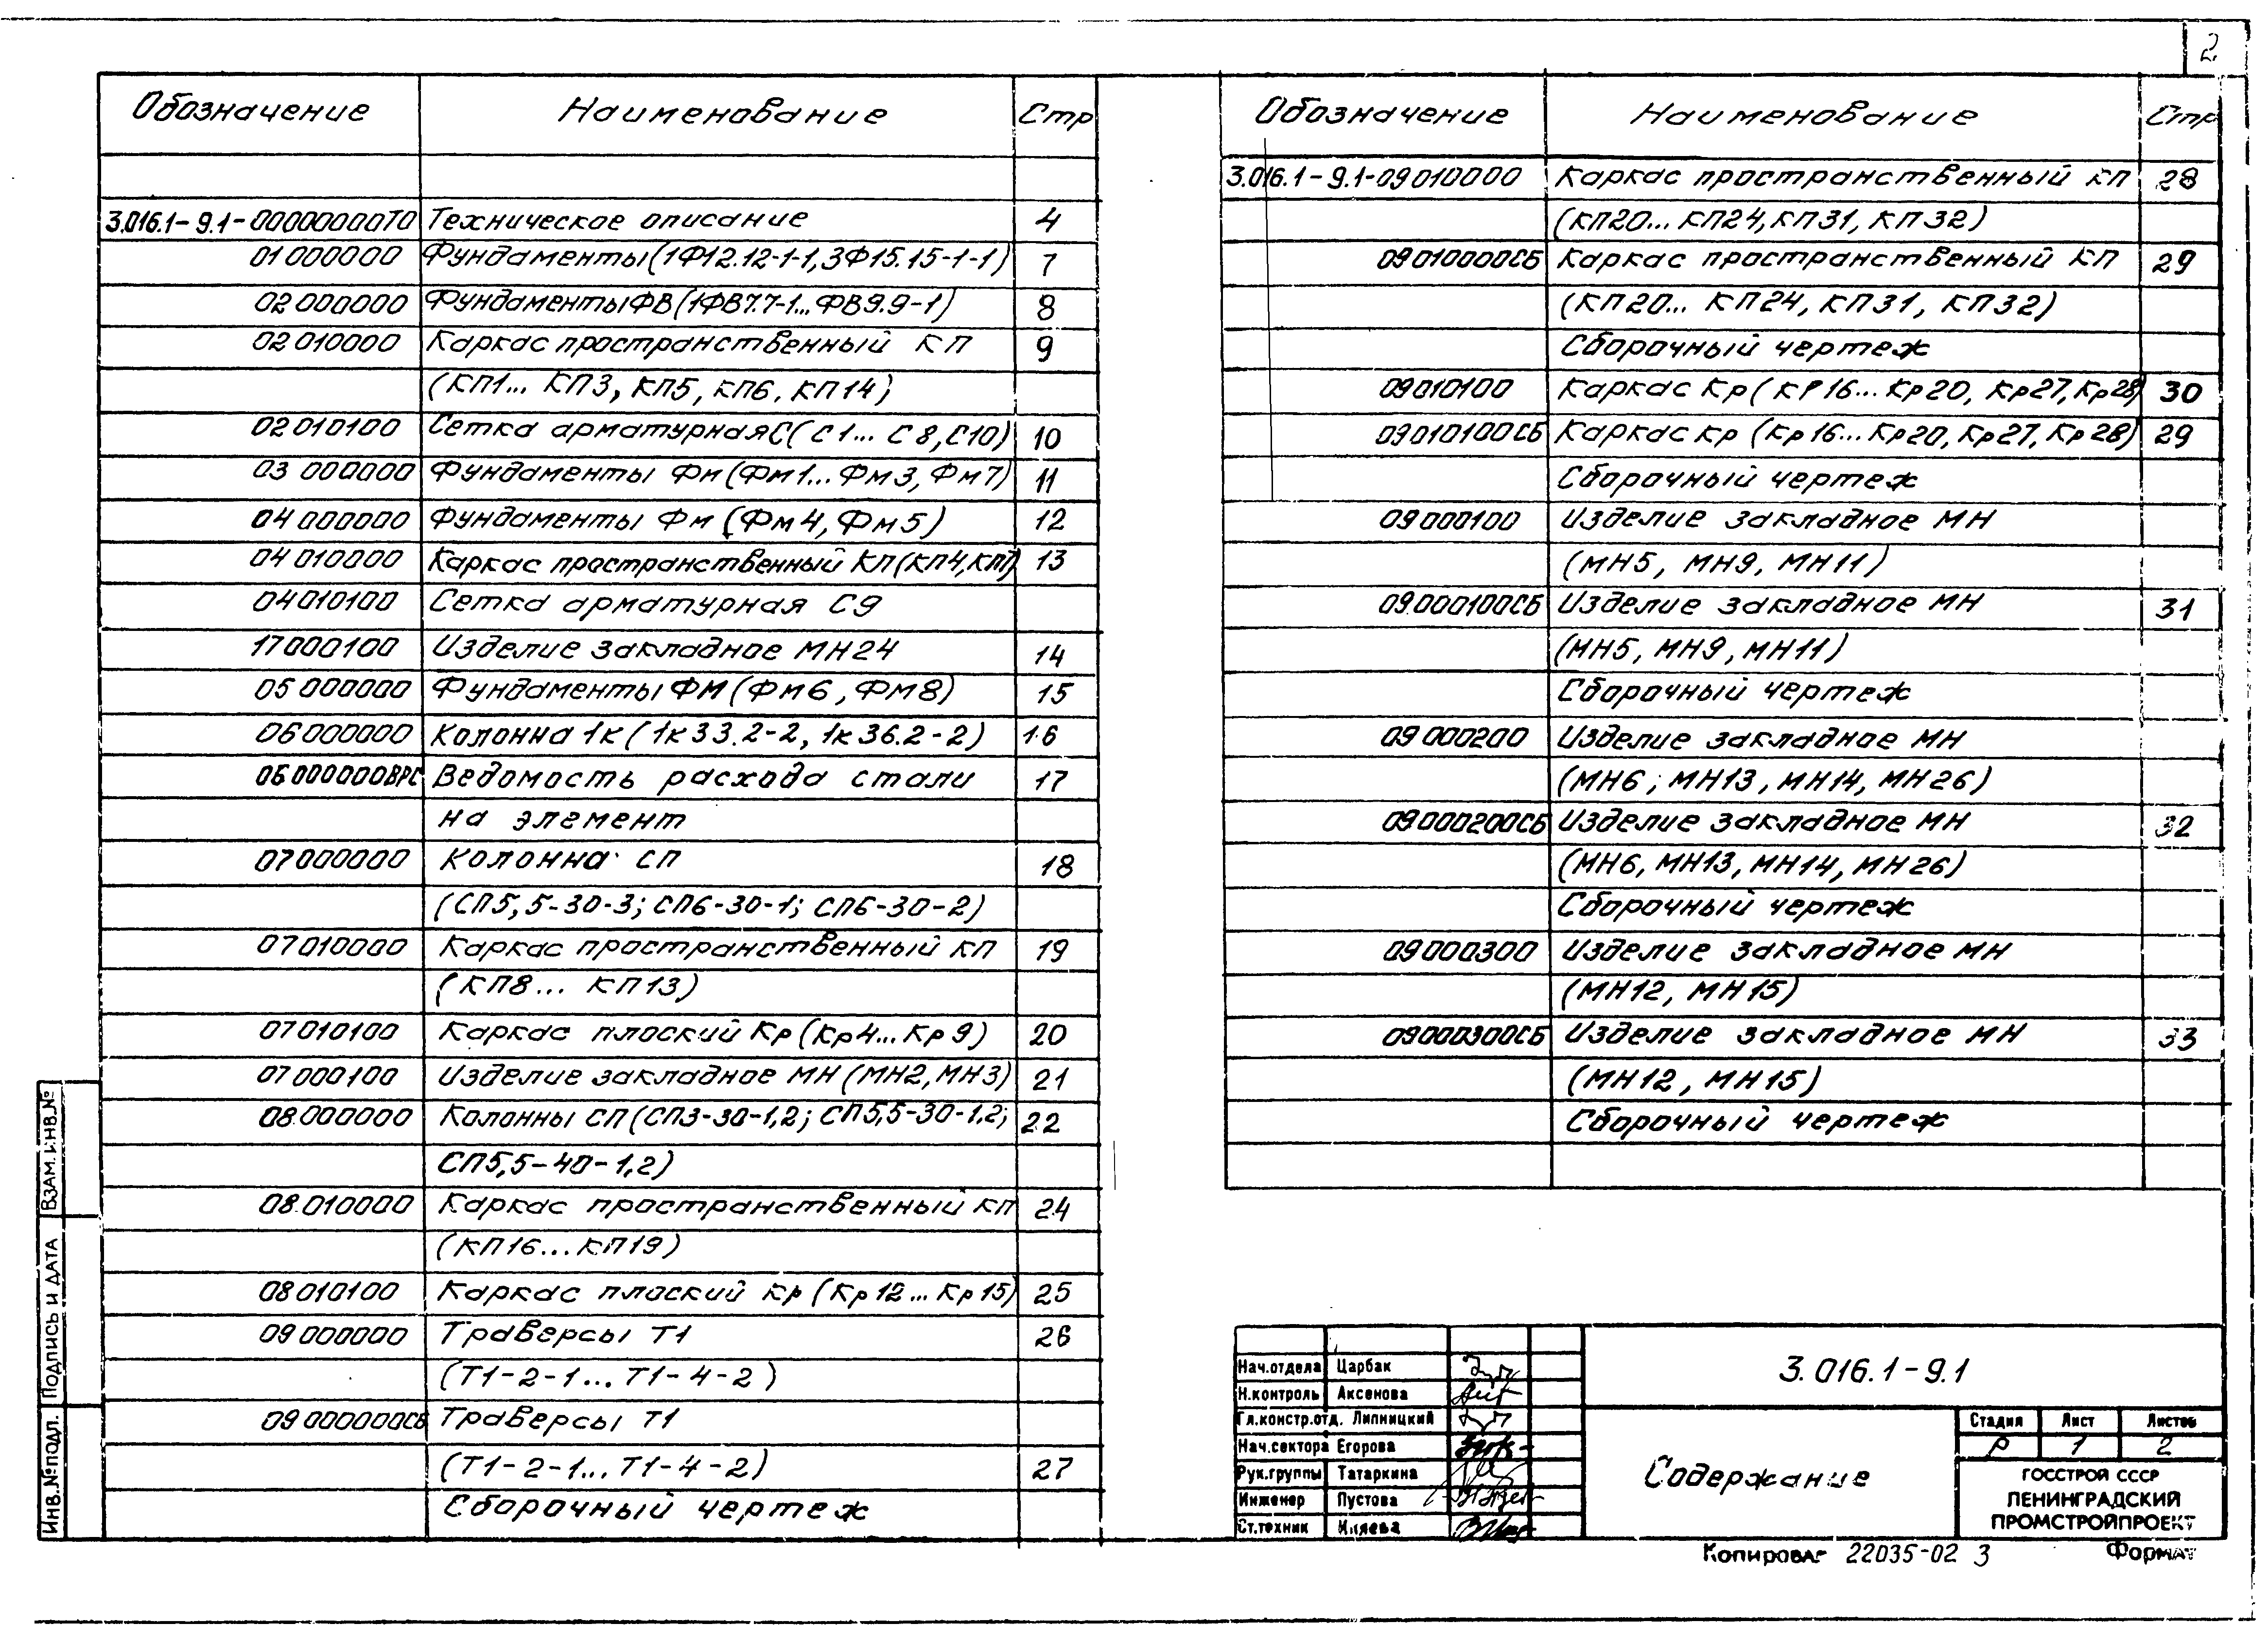 2
Обозначение Наименование Стр
3.016.1-9.1-00000000ТО Техническое описание 4
01 000000 Фундаменты (1Ф12.12-1-1, 3Ф15.15-1-1) 7
02 000000 Фундаменты ФВ (1ФВ7.7-1... ФВ9.9-1) 8
02 010000 Каркас пространственный КП 9
(КП1... КП3, КП5, КП6, КП14)
02 010100 Сетка арматурная С (С1... С8, С10) 10
03 000000 Фундаменты Фм (Фм1... Фм3, Фм7) 11
04 000000 Фундаменты Фм (Фм4, Фм5) 12
04 010000 Каркас пространственный КП (КП4, КП7) 13
04010100 Сетка арматурная С9
17000100 Изделие закладное МН24 14
05 000000 Фундаменты ФМ (Фм6, ФМ8) 15
06 000000 Колонна 1к (1к33.2-2, 1к36.2-2) 16
06 000000ВРС Ведомость расхода стали 17
на элемент
07000000 Колонна СП 18
(СП5,5-30-3; СП6-30-1; СП6-30-2)
07010000 Каркас пространственный КП 19
(КП8... КП13)
07010100 Каркас плоский Кр (Кр4... Кр9) 20
07 000100 Изделие закладное МН (МН2, МН3) 21
08.000000 Колонны СП (СП3-30-1,2; СП5,5-30-1,2; 22
СП5,5-40-1,2)
08.010000 Каркас пространственный КП 24
(КП16... КП19)
08 010100 Каркас плоский Кр (Кр12... Кр15) 25
09 000000 Траверсы Т1 26
(Т1-2-1... Т1-4-2)
09 000000СБ Траверсы Т1
(Т1-2-1... Т1-4-2) 27
Сборочный чертеж
Обозначение Наименование Стр
3.016.1-9.1-09010000 Каркас пространственный КП 28
(КП20... КП24, КП31, КП32)
09010000СБ Каркас пространственный КП 29
(КП20... КП24, КП31, КП32)
Сборочный чертеж
09010100 Каркас Кр (Кр16... Кр20, Кр27, Кр28) 30
09010100СБ Каркас Кр (Кр16... Кр20, Кр27, Кр28) 29
Сборочный чертеж
09000100 Изделие закладное МН
(МН5, МН9, МН11)
09.000100СБ Изделие закладное МН 31
(МН5, МН9, МН11)
Сборочный чертеж
09 000200 Изделие закладное МН
(МН6, МН13, МН14, МН26)
09.000200СБ Изделие закладное МН 32
(МН6, МН13, МН14, МН26)
Сборочный чертеж
09000300 Изделие закладное МН
(МН12, МН15)
09000300СБ Изделие закладное МН 33
(МН12, МН15)
Сборочный чертеж
Взам. инв.№
Подпись и дата
Инв.№ подл.
Нач.отдела Царбак
Н.контроль Аксенова
Гл.констр.отд. Липницкий
Нач.сектора Егорова
Рук.группы Татаркина
Инженер Пустова
Ст.техник
3.016.1-9.1
Содержание
Стадия Лист Листов
Р 1 2
ГОССТРОЙ СССР
ЛЕНИНГРАДСКИЙ
ПРОМСТРОЙПРОЕКТ
Копировал 22035-02 3 Формат